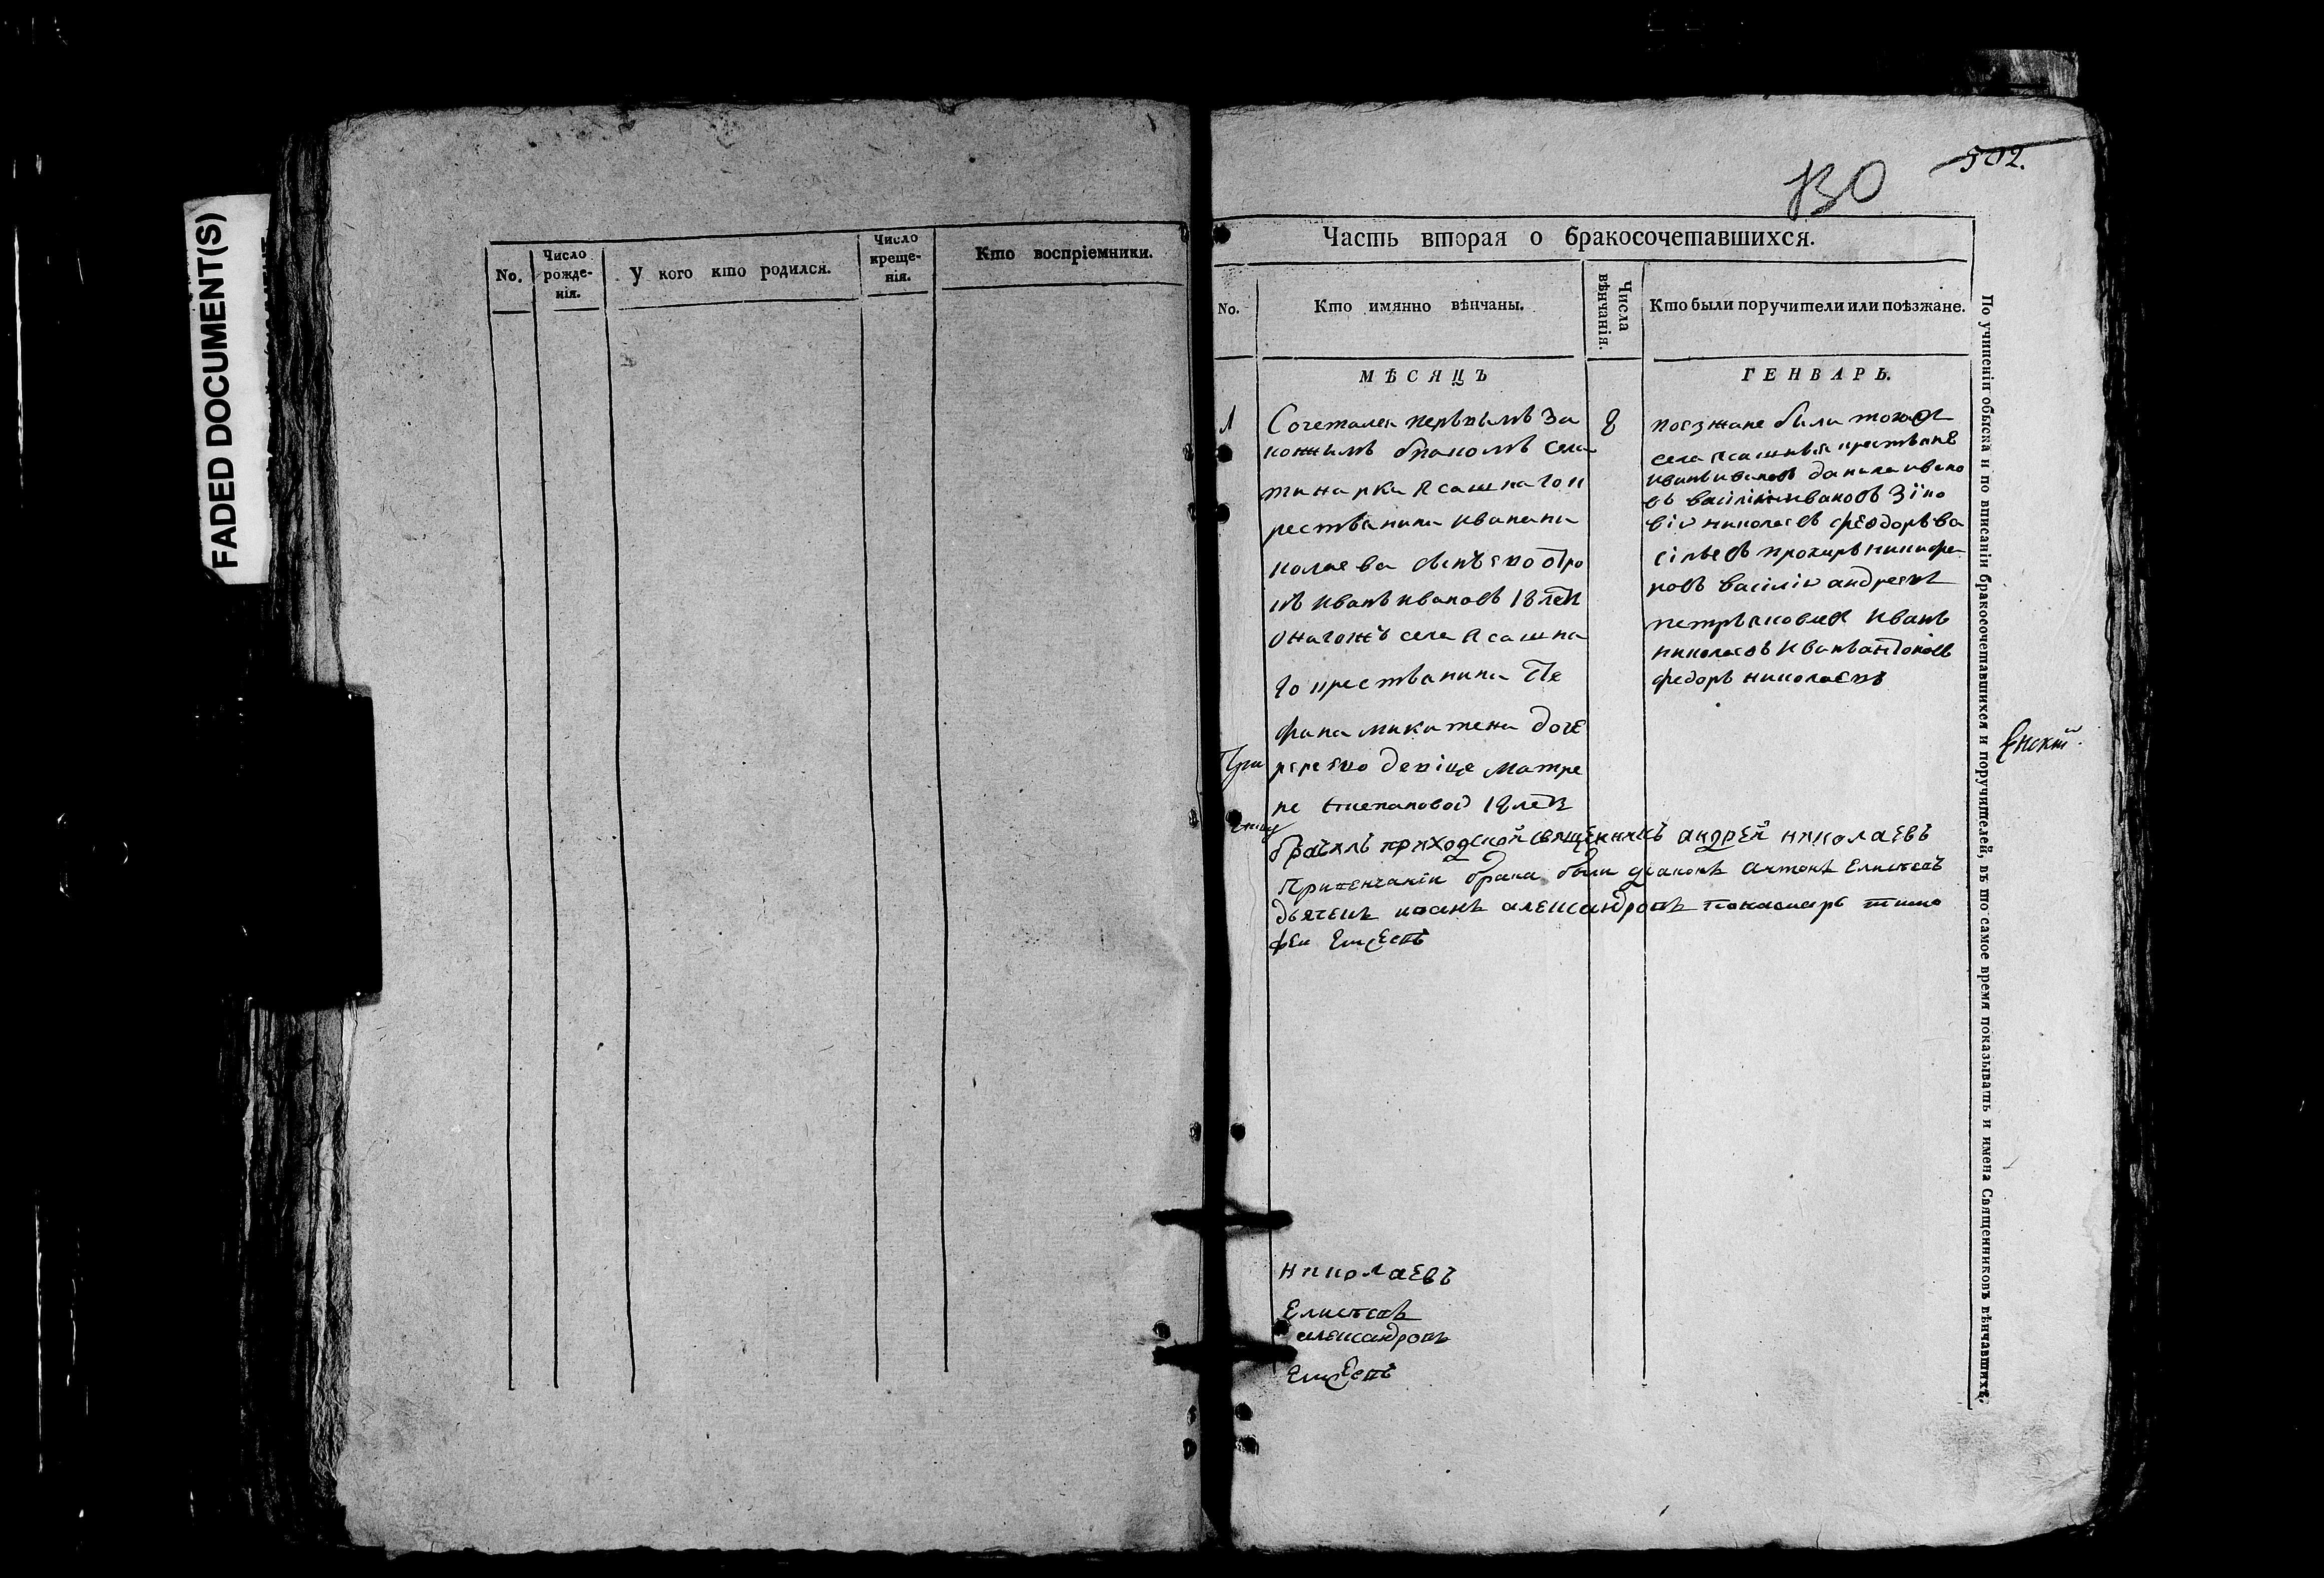 FADED DOCUMENT(S)
No.
Число рожде- нія.
У кого кто родился.
Число креще- нія.
Кто воспріемники.
502.
130
Часть вторая о бракосочетавшихся.
No.
Кто имянно вѣнчаны.
Числа вѣнчанія.
Кто были поручители или поѣзжане.
МѢСЯЦЪ
ГЕНВАРЬ.
1
Сочетался первымъ За
коннымъ бракомъ села
ясашнаго к
рестьянина ивана ни
колаева сынъ ево отро
къ иванъ ивановъ 18 летъ
онагожъ села Ясашна
го крестьянина Сте
фана микитена доче
ререю ево девіце матре
не степановой 18 летъ
8
поезжане были тогожъ
села ясашныя крестьяне
иванъ ивановъ данила ивано
въ василій ивановъ Зіно
вій николаевъ феодоръ ва
сільевъ прохиръ никифо
ровъ василій андреевъ
петръ яковлевъ Иванъ
николаевъ Иванъ антоновъ
федоръ николаевъ
бракъ приходской священникъ андрей николаевъ
При венчаніи брака были диаконъ антонъ Елисеевъ
дьячекъ иоанъ александровъ Понамарь тимо
фей Елисеевъ
николаевъ
Елисеевъ
александровъ
Елисеевъ
По учиненіи обыска и по вписаніи бракосочетавшихся и поручителей, въ то самое время показывать и имена Священниковъ вѣнчавшихъ.